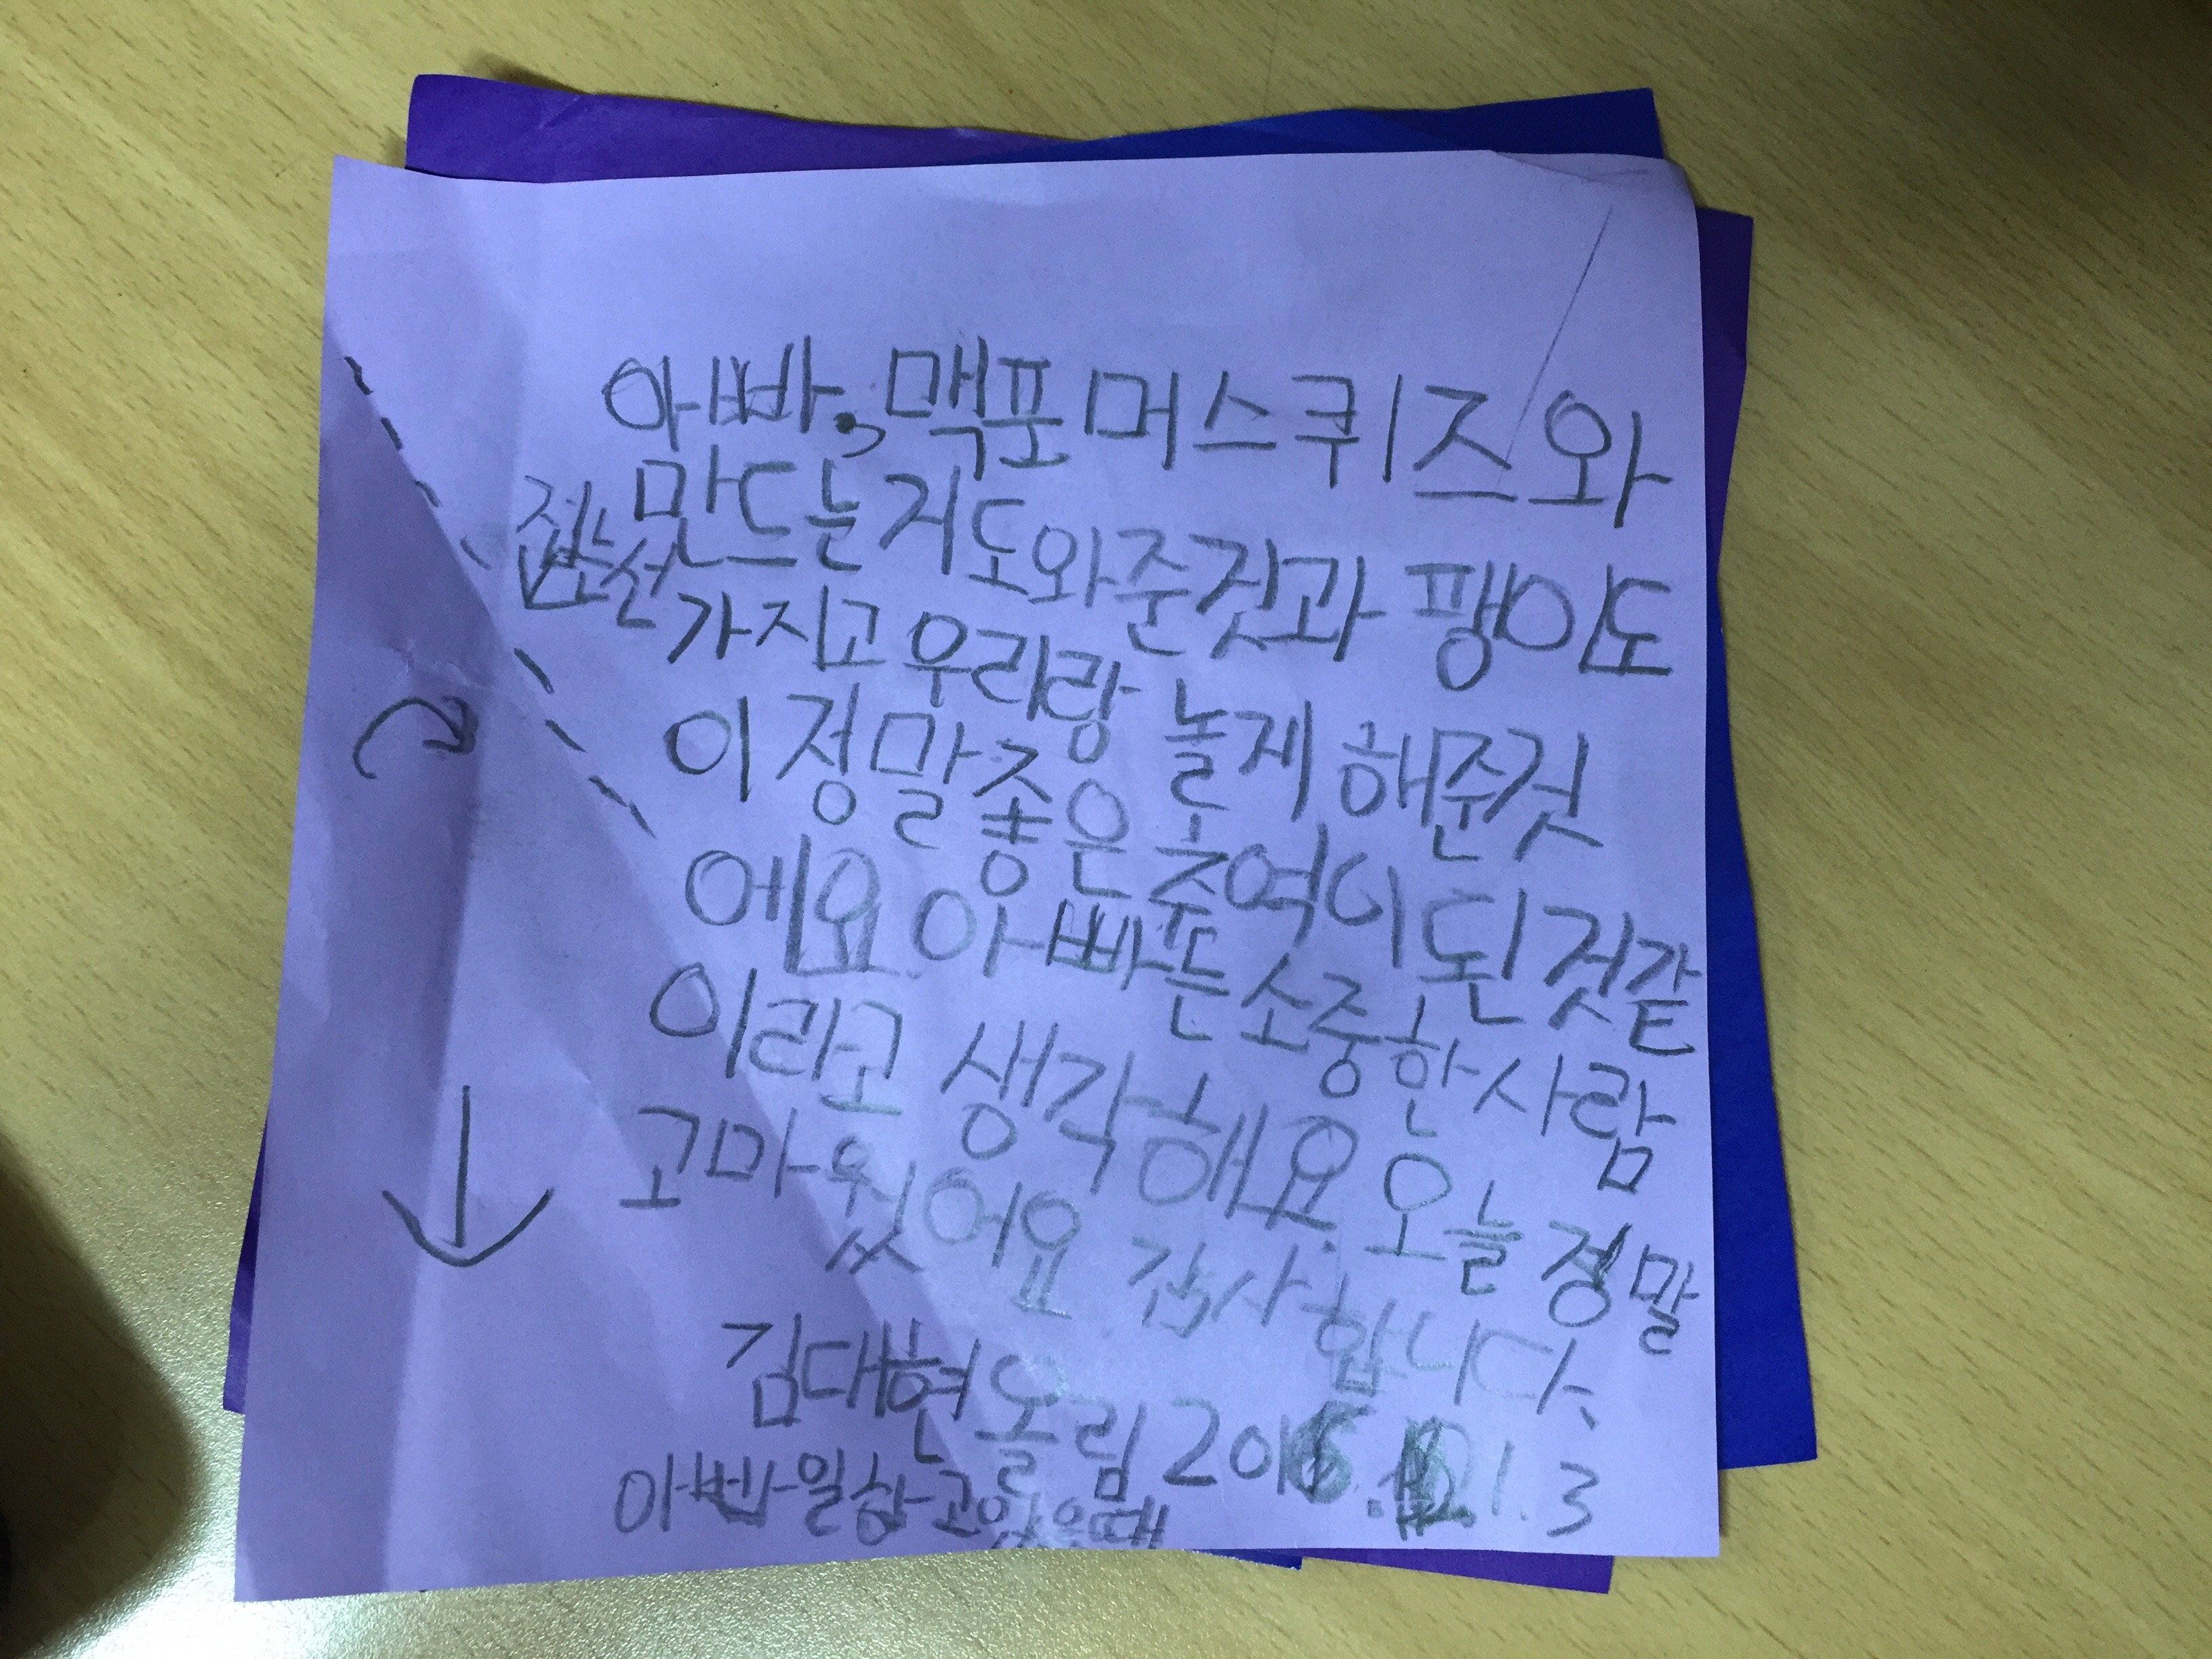 아빠, 맥포머스퀴즈와
만드는거도와준것과 팽이도
접는선
가지고 우리랑 놀게 해준것
이 정말좋은추억이 된것같
에요. 아빠는소중한사람
이라고 생각해요. 오늘 정말
고마웠어요 감사합니다.
김대현올림 2016. 1.3
아빠일하고있을때